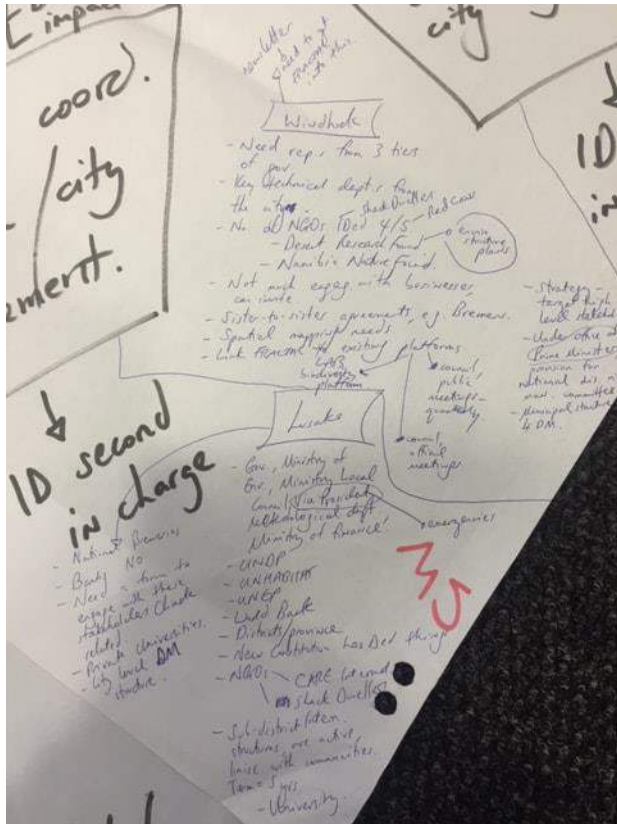 impact
coord.
city
ement.
city
ID
in
newsletter
need to get
into this.
Windhoek
- Need reps from 3 tiers
of gov
- Key technical depts from
the city
- No. of NGOs Ded 4/5
Shack Dwellers
Red Cross
- Desert Research Found
- Namibia Nature Found.
structure
plans
- Not much engag. with businesses,
can invite.
- Sister-to-sister agreements, e.g. Bremen.
- Spatial mapping needs.
- Link to existing platforms
LAB,
biodiversity
platform
council,
public
meetings -
quarterly
council,
official
meetings
- Strategy -
target high
level stakeh
- Under office of
Prime Minister
provision for
national dis
man. committee
- Municipal structure
4 DM.
ID second
in charge
Lusaka
- Gov, Ministry of
Gov, Ministry Local
Council via President
Meteorological dept
Ministry of finance!
emergencies
- UNDP
- UNHABITAT
- UNEP
- World Bank
- Districts/province
- New Constitution has Ded things
- NGOs - CARE Internat
Shack Dwellers
- Sub-district
structures are active,
liaise with communities.
Term = 5 yrs
- University.
- National
- NO
- Need a from to
engage with these
stakeholders climate
related
- Private Universities.
- City level DM
structure.